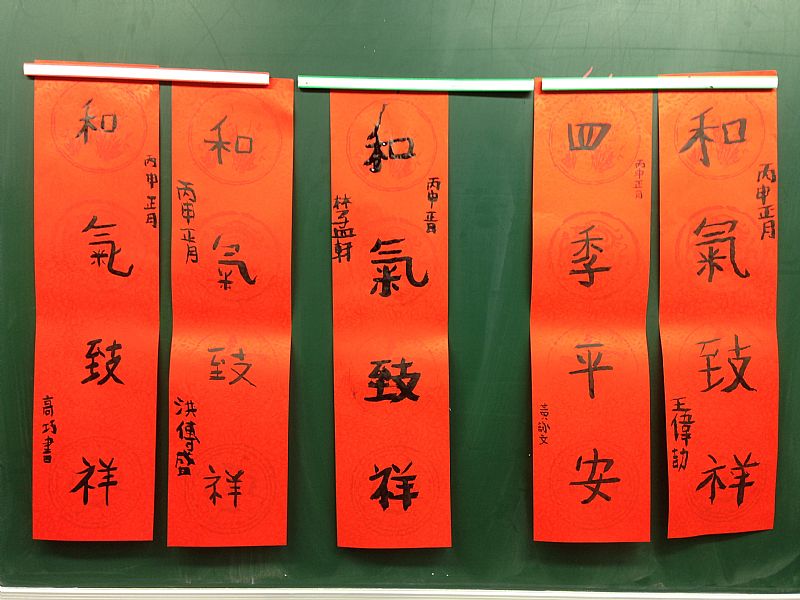 和氣致祥
丙申正月
高巧書
和氣致祥
丙申正月
洪傳盛
和氣致祥
丙申正月
四季平安
丙申正月
黃詠文
和氣致祥
丙申正月
王偉